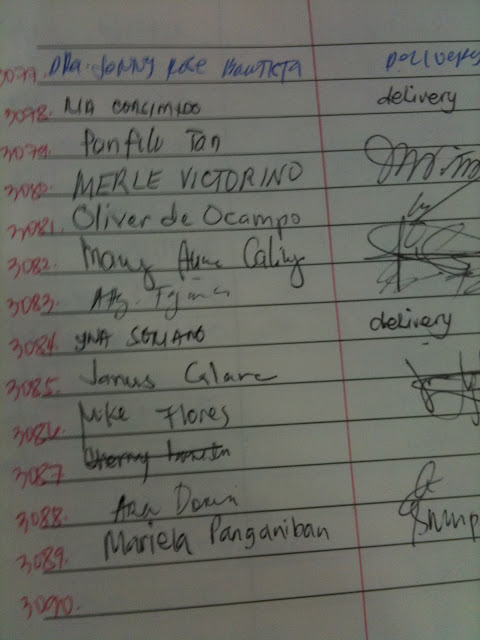 3077. DRA. JONNY ROSE BAUTISTA delivery
3078. MA CONCIMIDO delivery
3079. Panfilo Tan
3080. MERLE VICTORINO
3081. Oliver de Ocampo
3082. Mary Anne
3083. Atty.
3084. YNA delivery
3085. Janus
3086. Mike Flores
3087
3088. Ana
3089. Mariela Panganiban
3090.